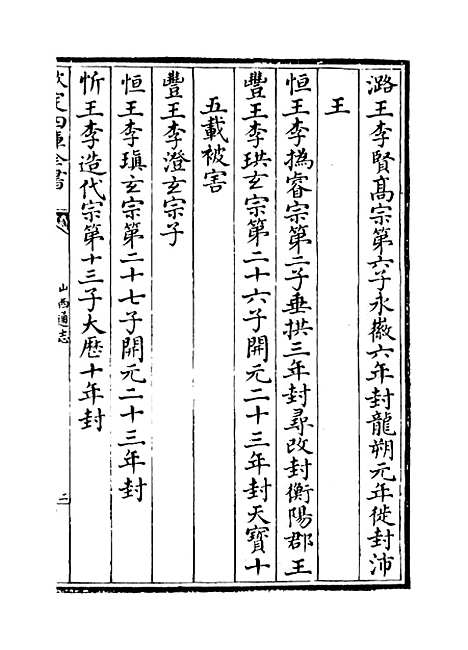 潞王李賢髙宗第六子永徽六年封龍朔元年徙封沛
王
恒王李撝睿宗第二子垂拱三年封尋改封衡陽郡王
豐王李珙玄宗第二十六子開元二十三年封天寶十
五載被害
豐王李澄玄宗子
恒王李瑱玄宗第二十七子開元二十三年封
忻王李造代宗第十三子大厯十年封
欽定四庫全書
山西通志
三